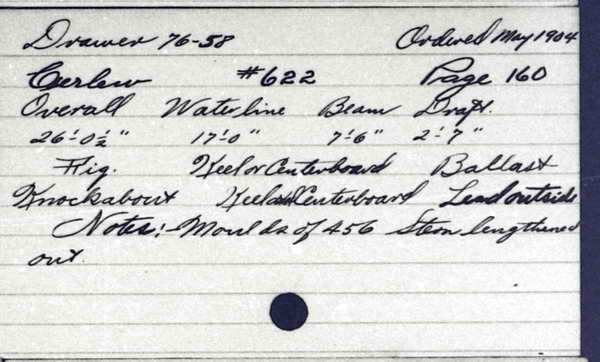 Drawer 76-58 Ordered May 1904
Curlew #622 Page 160
Overall Waterline Beam Draft.
26'-0½" 17'-0" 7'-6" 2'-7"
Rig. Keel or Centerboard Ballast
Knockabout Keel and Centerboard Lead outside
Notes: Moulds of 456 Stem lengthened
out.